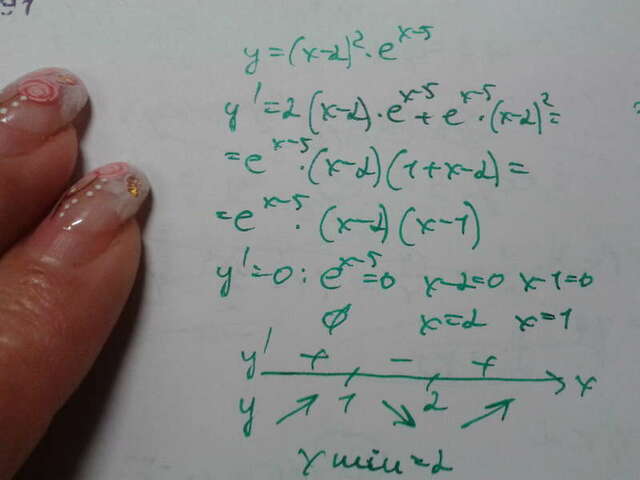 91
y = (x-2)² · e^(x-5)
y' = 2(x-2) · e^(x-5) + e^(x-5) · (x-2)² =
= e^(x-5) · (x-2)(1+x-2) =
= e^(x-5) · (x-2)(x-1)
y' = 0 : e^(x-5) = 0 x-2=0 x-1=0
∅ x=2 x=1
y' + - + x
y ↗ 1 ↘ 2 ↗
x min = 2